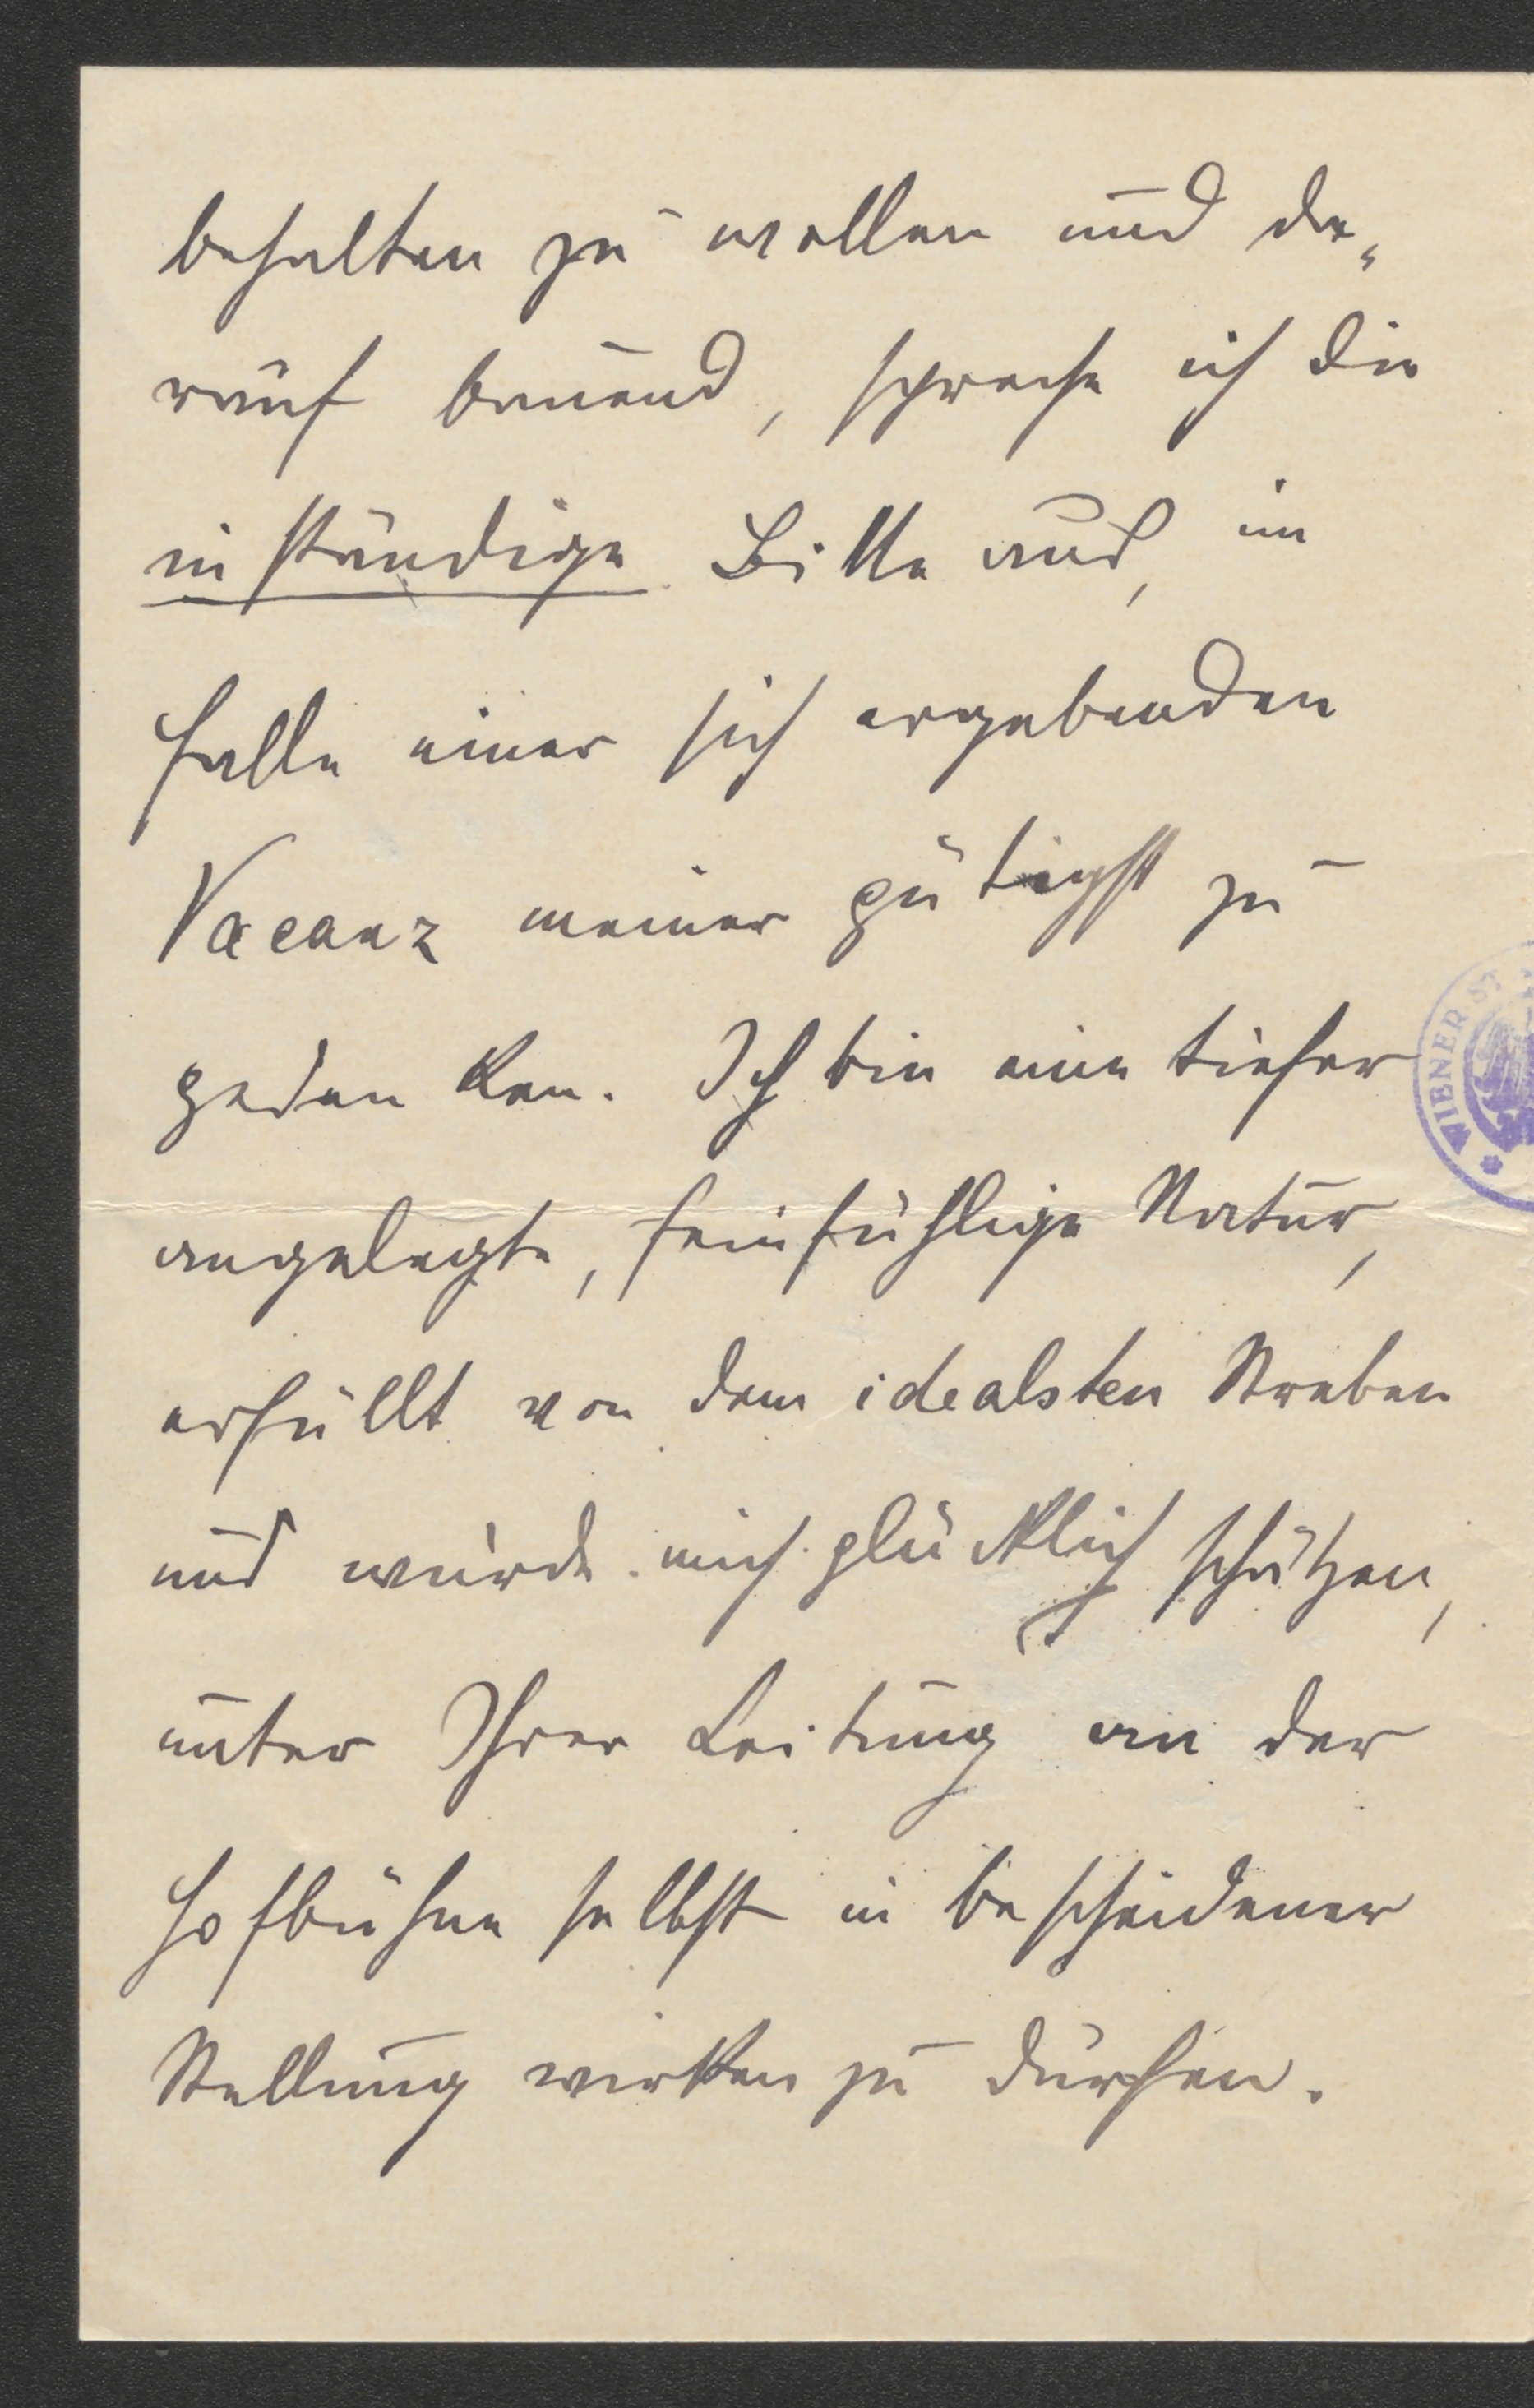 behalten zu wollen und da„
rauf bauend, spreche ich die
inständige Bitte aus, im
Falle einer sich ergebenden
Vacanz meiner gütigst zu
gedenken. Ich bin eine tiefer
angelegte, feinfühlige Natur,
erfüllt von dem idealsten Streben
und würde mich glücklich schätzen,
unter Ihrer Leitung an der
Hofbühne selbst in bescheidener
Stellung wirken zu dürfen.
WIENER ST